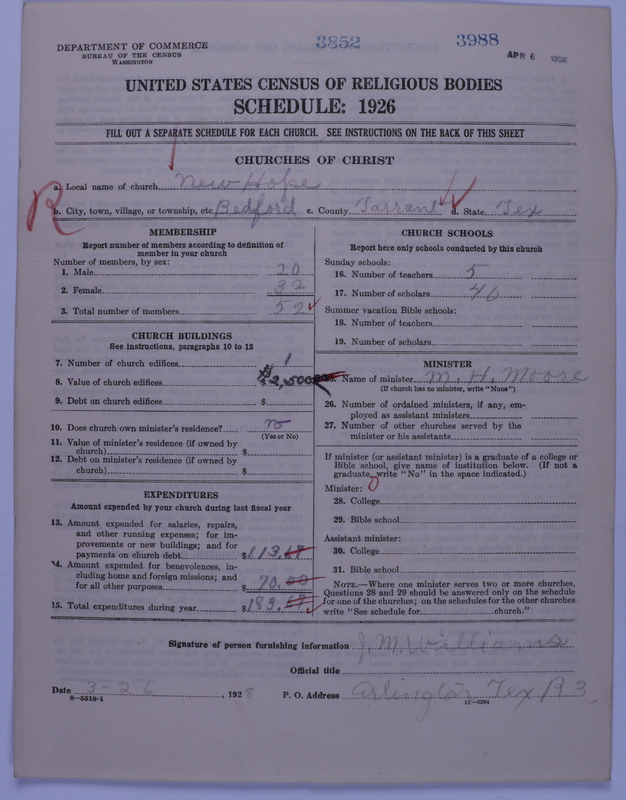 3852
3988
DEPARTMENT OF COMMERCE
BUREAU OF THE CENSUS
WASHINGTON
APR 6 1928
UNITED STATES CENSUS OF RELIGIOUS BODIES
SCHEDULE: 1926
FILL OUT A SEPARATE SCHEDULE FOR EACH CHURCH. SEE INSTRUCTIONS ON THE BACK OF THIS SHEET
CHURCHES OF CHRIST
R
a. Local name of church New Hope
b. City, town, village, or township, etc. Bedford c. County Tarrant d. State Tex
MEMBERSHIP
Report number of members according to definition of
member in your church
Number of members, by sex:
1. Male 20
2. Female 32
3. Total number of members 52
CHURCH BUILDINGS
See instructions, paragraphs 10 to 12
7. Number of church edifices 1
8. Value of church edifices $2,500
9. Debt on church edifices $
10. Does church own minister's residence? no
(Yes or No)
11. Value of minister's residence (if owned by
church) $
12. Debt on minister's residence (if owned by
church) $
EXPENDITURES
Amount expended by your church during last fiscal year
13. Amount expended for salaries, repairs,
and other running expenses; for im-
provements or new buildings; and for
payments on church debt $113.67
14. Amount expended for benevolences, in-
cluding home and foreign missions; and
for all other purposes $70.00
15. Total expenditures during year $183.67
CHURCH SCHOOLS
Report here only schools conducted by this church
Sunday schools:
16. Number of teachers 5
17. Number of scholars 40
Summer vacation Bible schools:
18. Number of teachers
19. Number of scholars
MINISTER
Name of minister M. H. Moore
(If church has no minister, write "None")
26. Number of ordained ministers, if any, em-
ployed as assistant ministers
27. Number of other churches served by the
minister or his assistants
If minister (or assistant minister) is a graduate of a college or
Bible school, give name of institution below. (If not a
graduate, write "No" in the space indicated.)
Minister: 0
28. College
29. Bible school
Assistant minister:
30. College
31. Bible school
NOTE.—Where one minister serves two or more churches,
Questions 28 and 29 should be answered only on the schedule
for one of the churches; on the schedules for the other churches
write "See schedule for church."
Signature of person furnishing information J. M. Williams
Official title
Date 3-26, 1928 P. O. Address Arlington Tex R 3.
8-5518-1
11-9204